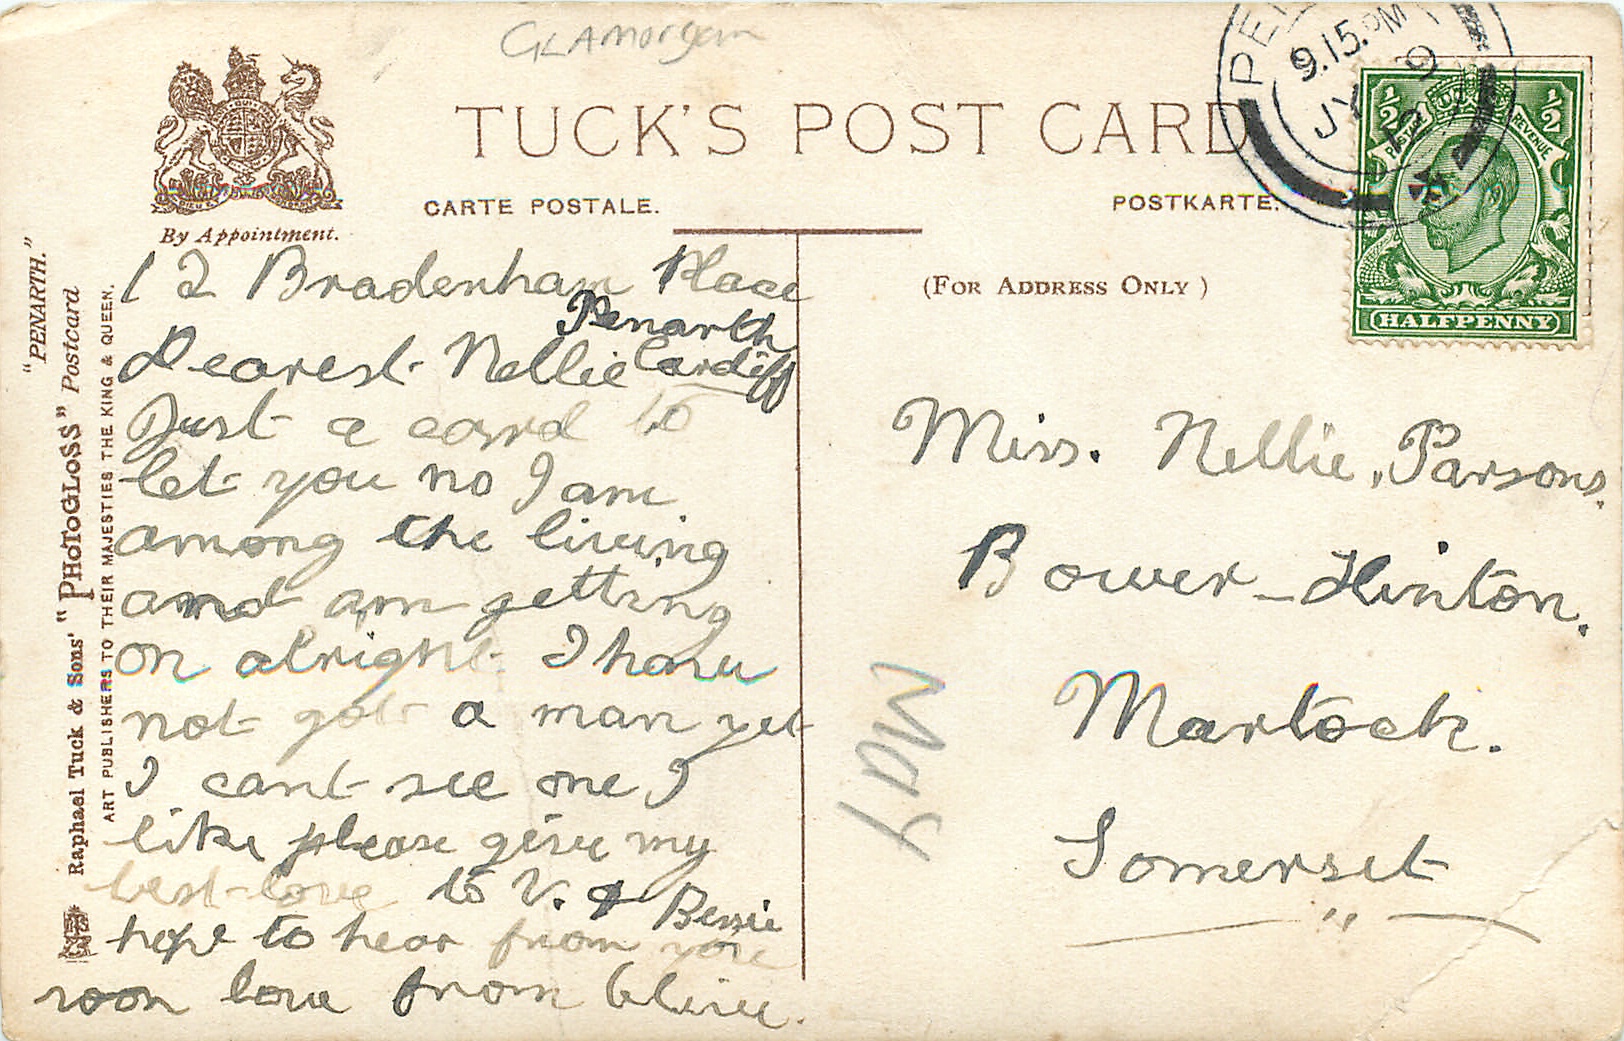 GLAmorgan
TUCK'S POST CARD
CARTE POSTALE.
POSTKARTE.
By Appointment.
(FOR ADDRESS ONLY)
"PENARTH."
Raphael Tuck & Sons' "PHOTOGLOSS" Postcard
ART PUBLISHERS TO THEIR MAJESTIES THE KING & QUEEN.
9.15.PM
JY 9
12
½ ½
POSTAGE REVENUE
HALFPENNY
12 Bradenham Place
Penarth
Cardiff
Dearest Nellie
Just a card to
let you no I am
among the living
and am getting
on alright I have
not got a man yet
I cant see one I
like please give my
best love to V. & Bessie
hope to hear from you
soon love from Clive.
Miss. Nellie. Parsons.
Bower-Hinton.
Martock.
Somerset
May